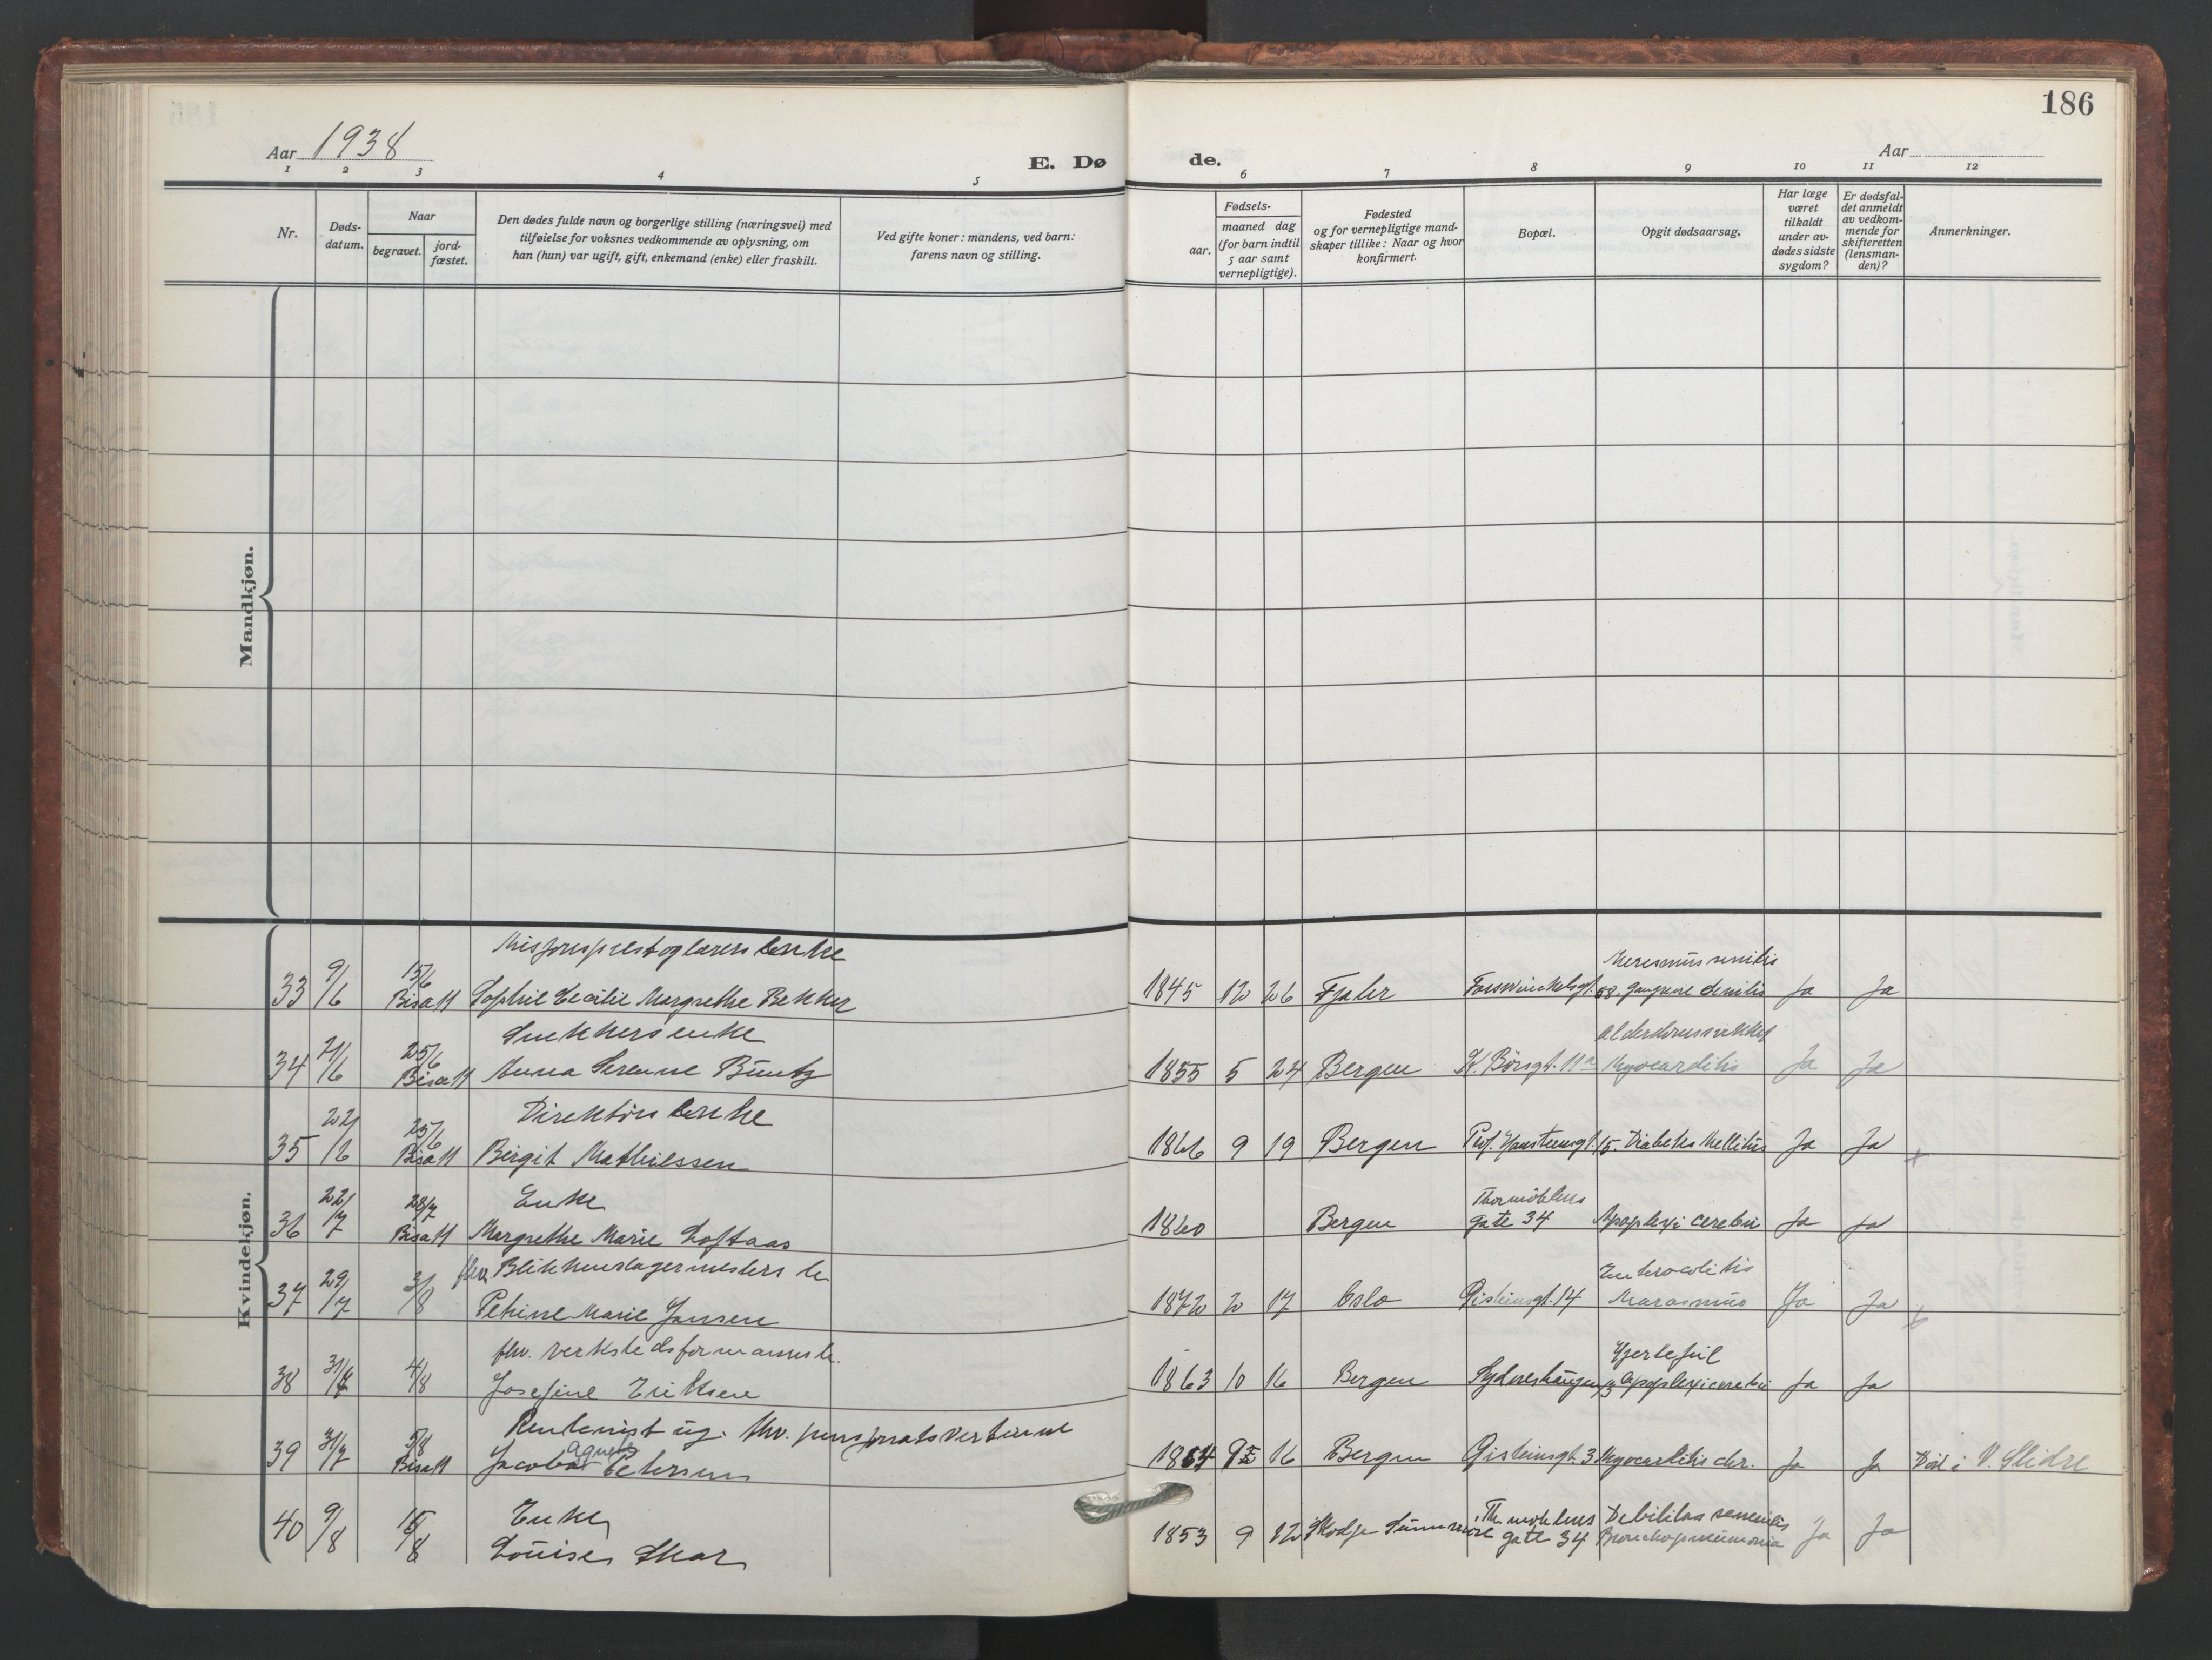 186
Aar 1938
E. Dø
de.
Aar
1 2 3 4 5 6 7 8 9 10 11 12
Nr.
Døds-
datum.
Naar
begravet.
jord-
fæstet.
Den dødes fulde navn og borgerlige stilling (næringsvei) med
tilføielse for voksnes vedkommende av oplysning, om
han (hun) var ugift, gift, enkemand (enke) eller fraskilt.
Ved gifte koner: mandens, ved barn:
farens navn og stilling.
Fødsels-
aar.
maaned dag
(for barn indtil
5 aar samt
vernepligtige).
Fødested
og for vernepligtige mand-
skaper tillike: Naar og hvor
konfirmert.
Bopæl.
Opgit dødsaarsag.
Har læge
været
tilkaldt
under av-
dødes sidste
sygdom?
Er dødsfal-
det anmeldt
av vedkom-
mende for
skifteretten
(lensman-
den)?
Anmerkninger.
Mandkjøn.
Kvindekjøn.
Misjonsprest og lærers enke
33 9/6 15/6 Bisatt Sophie Cecilie Margrethe Bekker 1845 12 26 Fjaler Marasmus senilis
58. Gangrene senilis Ja Ja
Snekkers enke
34 21/6 25/6 Bisatt Anna Serenne Büntz 1855 5 24 Bergen Alderdomssvekkelse
Myocarditis Ja Ja
Direktørs enke
35 22/6 25/6 Bisatt Birgit Mathiessen 1866 9 19 Bergen Prof. Hansteensgt. 15. Diabetes Mellitus Ja Ja
Enke
36 22/7 28/7 Bisatt Margrethe Marie Loftaas 1860 Bergen Thormøhlens
gate 34 Apoplexi cerebri Ja Ja
Blikkenslagermesters e.
37 29/7 3/8 Petrine Marie Jansen 1872 2 17 Oslo Øisteinsgt. 14 Enterocolitis
Marasmus Ja Ja
fhv. verkstedsformanns e.
38 31/7 4/8 Josefine Eriksen 1863 10 16 Bergen Sydneshaugen Hjertefeil
Apoplexi cerebri Ja Ja
Rentenist ug. fhv. pensjonatsvertinne
39 31/7 5/8 Bisatt Jacoba Agnete Petersen 1864 9 16 Bergen Øisteinsgt. 3 Myocarditis chr. Ja Ja Død i V. Slidre
Enke
40 9/8 15/8 Louise Skar 1853 9 12 Skodje Sunnmøre Th. møhlens
gate 34 Debilitas senilis
Bronchopneumonia Ja Ja